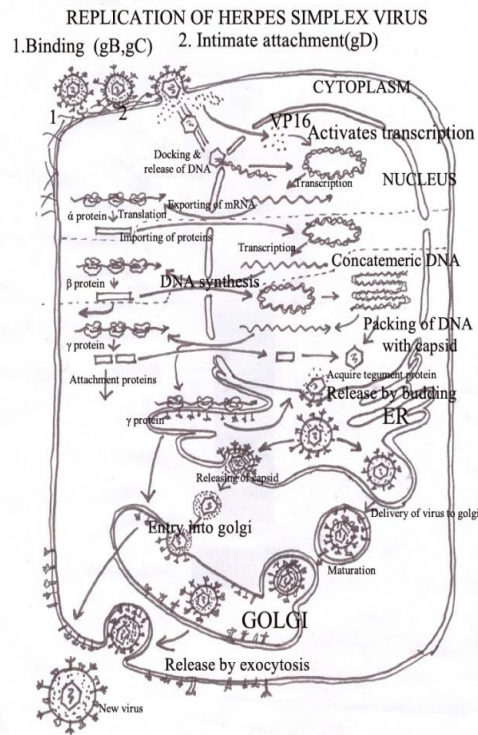 REPLICATION OF HERPES SIMPLEX VIRUS
1.Binding (gB,gC)
2. Intimate attachment(gD)
CYTOPLASM
1
2
VP16
Activates transcription
Docking &
release of DNA
Transcription
NUCLEUS
Exporting of mRNA
α protein
Translation
Importing of proteins
Transcription
Concatemeric DNA
β protein
DNA synthesis
Packing of DNA
with capsid
γ protein
Attachment proteins
Acquire tegument protein
Release by budding
ER
γ protein
Releasing of capsid
Delivery of virus to golgi
Entry into golgi
Maturation
GOLGI
Release by exocytosis
New virus